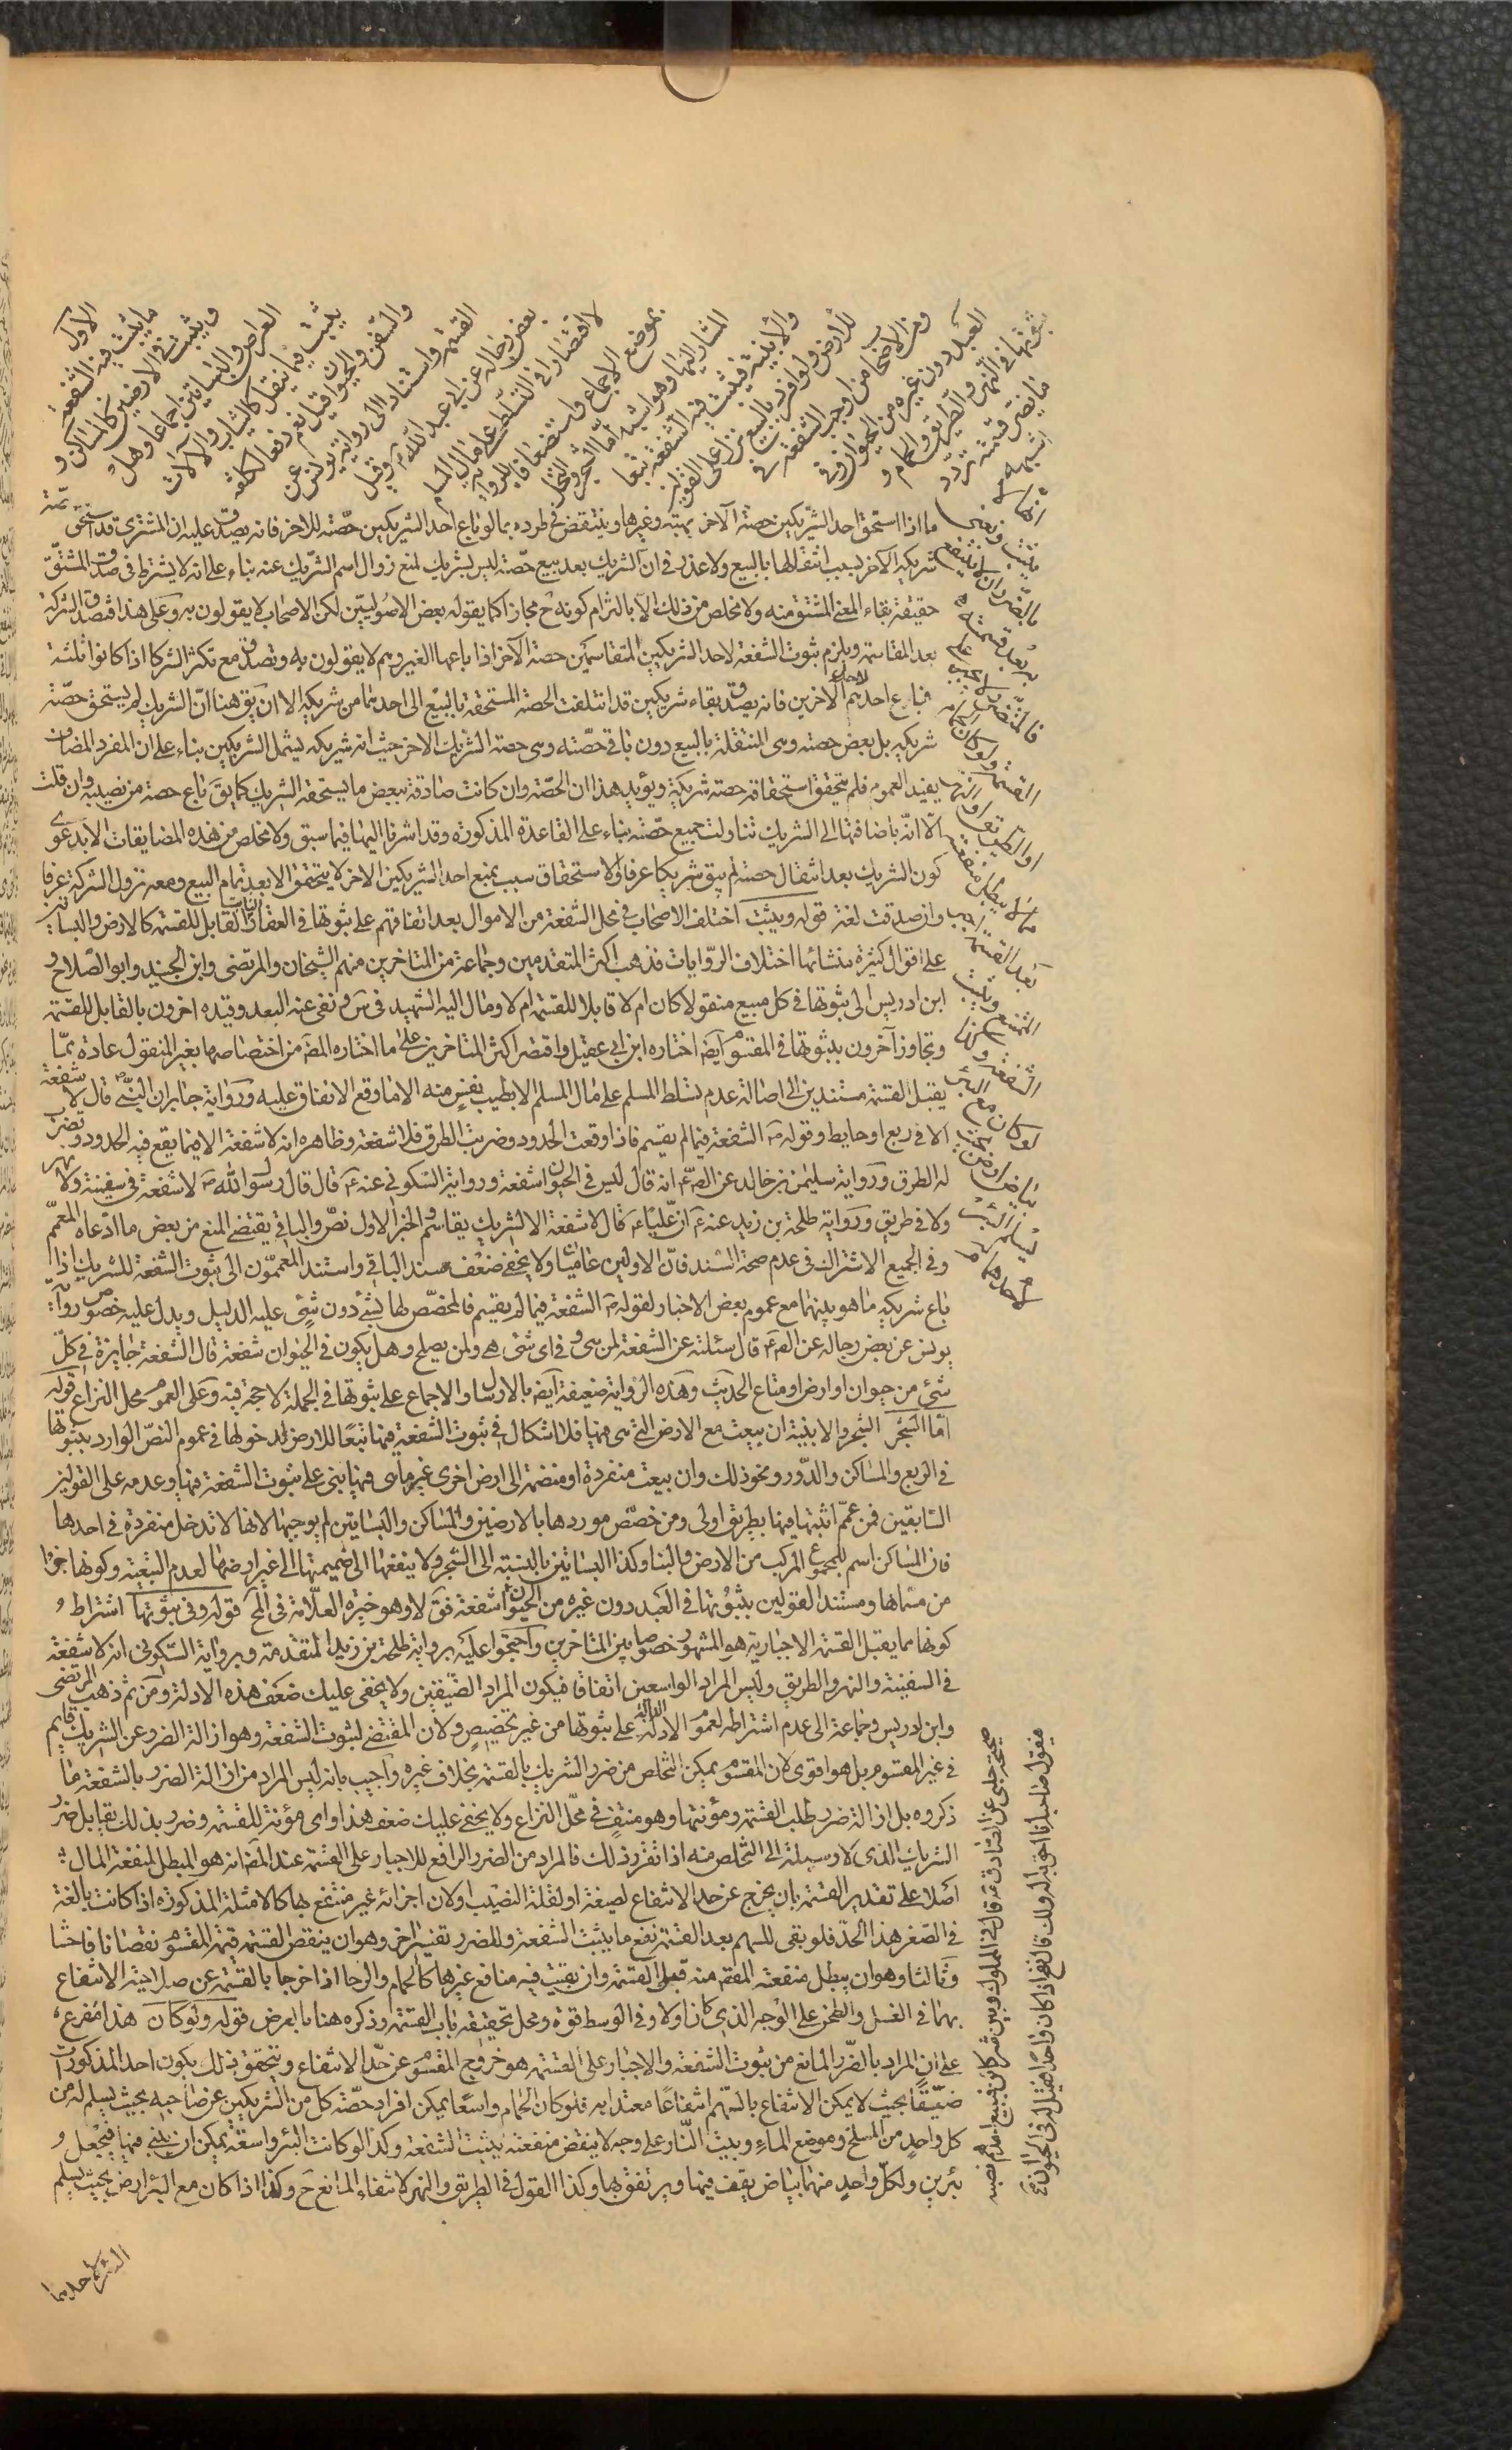 الأول
ما يثبت فيه الشفعة
وتثبت في الارضين كالمساكن و
العراص والبساتين اجماعا وهل
يثبت فيما ينقل كالثياب والآلات
والسفن والحيوان قيل نعم دفعا لكلفة
القسمة واستنادا الى رواية يونس عن
بعض رجاله عن ابي عبد الله ع وقيل
لا اقتصارا في التسلط على مال المسلم
بموضع الاجماع واستضعافا للرواية
المشار اليها وهو اشبه اما الشجر والنخل
والأبنية فتثبت فيه الشفعة تبعا
للأرض ولو افرد بالبيع نزل على القولين
ومن الاصحاب من اوجب الشفعة في
العبد دون غيره من الحيوان وفي
ثبوتها في النهر والطريق والحمام و
ما يضر قسمته تردد
اشبهه
انها لا
تثبت ونعنى
بالضرر ان لا ينتفع
به بعد قسمته
فالمتضرر لا يجبر على
القسمة ولو كان الحمام
او الطريق او النهر
مما لا يبطل منفعته
بعد القسمة اجبر
الممتنع وتثبت
الشفعة وكذا
لو كان مع البئر
بياض ارض بحيث
يسلم البئر
لاحدهما
ما اذا استحق احد الشريكين حصة الآخر بهبة وغيرها وينتقض في طرده بما لو باع احد الشريكين حصته للاخر فانه يصدق عليه ان المشتري قد استحق حصة
شريكه الآخر بسبب انتقالها بالبيع ولا عذر في ان الشريك بعد بيع حصته ليس بشريك لمنع زوال اسم الشريك عنه بناء على انه لا يشترط في صدق المشتق
حقيقة بقاء المعنى المشتق منه ولا مخلص من ذلك الا بالتزام كونه ح مجازا كما يقوله بعض الاصوليين لكن الاصحاب لا يقولون به وعلى هذا فتصدق الشركة
بعد المقاسمة ويلزم ثبوت الشفعة لاحد الشريكين المتقاسمين حصة الآخر اذا باعها الغير وهم لا يقولون به وتصدق مع تكثر الشركا اذا كانوا ثلثة
فباع احدهم لاحد الآخرين فانه يصدق بقاء شريكين قد انتقلت الحصة المستحقة بالبيع الى احدهما من شريكه الا ان يق هنا ان الشريك لم يستحق حصة
شريكيه بل بعض حصته وهي المنتقلة بالبيع دون باقي حصته وهي حصة الشريك الاخر حيث ان شريكه يشمل الشريكين بناء على ان المفرد المضاف
يفيد العموم فلم يتحقق استحقاقه حصة شريكه ويؤيد هذا ان الحصة وان كانت صادقة ببعض ما يستحقه الشريك كما يق باع حصة من نصيبه وان قلت
الا انه باضافتها الى الشريك تناولت جميع حصته بناء على القاعدة المذكورة وقد اشرنا اليها فيما سبق ولا مخلص من هذه المضايقات الا بدعوى
كون الشريك بعد انتقال حصته لم يبق شريكا عرفا ولا استحقاق بسبب يمنع احد الشريكين الاخر لا يتحقق الا بعد تمام البيع ومعه تزول الشركة عرفا
وان صدقت لغة قوله ويثبت اختلف الاصحاب في محل الشفعة من الاموال بعد اتفاقهم على ثبوتها في العقار الثابت القابل للقسمة كالارض والبساتين
على اقوال كثيرة منشائها اختلاف الروايات فذهب اكثر المتقدمين وجماعة من المتاخرين منهم الشيخان والمرتضى وابن الجنيد وابو الصلاح و
ابن ادريس الى ثبوتها في كل مبيع منقولا كان ام لا قابلا للقسمة ام لا ومال اليه الشهيد في س ونفى عنه البعد وقيده اخرون بالقابل للقسمة
وتجاوز آخرون بثبوتها في المقسوم ايضا اختاره ابن ابي عقيل واقتصر اكثر المتاخرين على ما اختاره المص من اختصاصها بغير المنقول عادة مما
يقبل القسمة مستندين الى اصالة عدم تسلط المسلم على مال المسلم الا بطيب نفس منه الا ما وقع الاتفاق عليه ورواية جابر ان النبي ص قال لا شفعة
الا في ربع او حايط وقوله ص الشفعة فيما لم يقسم فاذا وقعت الحدود وضربت الطرق فلا شفعة وظاهره انه لا شفعة الا فيما يقع فيه الحدود وتضرب
له الطرق ورواية سليمن بن خالد عن الص ع انه قال ليس في الحيوان شفعة ورواية السكوني عنه ع قال قال رسول الله ص لا شفعة في سفينة ولا نهر
ولا في طريق ورواية طلحة بن زيد عنه ع ان عليا ع قال لا شفعة الا لشريك يقاسم والخبر الاول نص والباقي يقتضي المنع من بعض ما ادعاه المعمم
وفي الجميع الاشتراك في عدم صحة السند فان الاولين عاميان ولا يخفى ضعف سند الباقي واستند المعممون الى ثبوت الشفعة للشريك اذا
باع شريكه ما هو بينهما مع عموم بعض الاخبار لقوله ص الشفعة فيما لم يقسم فالمخصص لها بشئ دون شئ عليه الدليل ويدل عليه خصوص رواية
يونس عن بعض رجاله عن الص ع قال سئلته عن الشفعة لمن هي وفي اي شئ هي ولمن يصلح وهل يكون في الحيوان شفعة قال الشفعة جايزة في كل
شئ من حيوان او ارض او متاع الحديث وهذه الرواية ضعيفة ايضا بالارسال والاجماع على ثبوتها في الجملة لا حجة فيه وعلى العموم محل النزاع قوله
اما الشجر الشجر والابنية ان بيعت مع الارض التي هي فيها فلا اشكال في ثبوت الشفعة فيها تبعا للارض لدخولها في عموم النص الوارد بثبوتها
في الربع والمساكن والدور ونحو ذلك وان بيعت منفردة او منضمة الى ارض اخرى غير ما هي فيها يبنى على ثبوت الشفعة فيها وعدمه على القولين
السابقين فمن عمم اثبتها فيها بطريق اولى ومن خصص موردها بالارضين والمساكن والبساتين لم يوجبها لانها لا تدخل منفردة في احدها
فان المساكن اسم للمجموع المركب من الارض والبنا وكذا البساتين بالنسبة الى الشجر ولا ينفعها الى ضميمتها الى غير ارضها لعدم التبعية وكونها جزءا
من مسماها ومستند القولين بثبوتها في العبد دون غيره من الحيوان شفعة فق لا وهو خيرة العلامة في المخ قوله وفي ثبوتها اشتراط
كونها مما يقبل القسمة الاجبارية هو المشهور خصوصا بين المتاخرين واحتجوا عليه برواية طلحة بن زيد المتقدمة وبرواية السكوني انه لا شفعة
في السفينة والنهر والطريق وليس المراد الواسعين اتفاقا فيكون المراد الضيقين ولا يخفى عليك ضعف هذه الادلة ومن ثم ذهب المرتضى
وابن ادريس وجماعة الى عدم اشتراطه لعموم الادلة الدالة على ثبوتها من غير تخصيص ولان المقتضى لثبوت الشفعة وهو ازالة الضرر عن الشريك قايم
في غير المقسوم بل هو اقوى لان المقسوم يمكن التخلص من ضرر الشريك بالقسمة بخلاف غيره واجيب بانه ليس المراد من ازالة الضرر بالشفعة ما
ذكروه بل ازالة ضرر طلب القسمة ومؤنتها وهو منتف في محل النزاع ولا يخفى عليك ضعف هذا واي مؤنة للقسمة وضرر بذلك يقابل ضرر
الشريك الذي لا وسيلة الى التخلص منه اذا تقرر ذلك فالمراد من الضرر الرافع للاجبار على القسمة عند المص انه هو المبطل لمنفعة المال
اصلا على تقدير القسمة بان يخرج عن حد الانتفاع لضيقه او لقلة النصيب او لان اجزائه غير منتفع بها كالامثلة المذكورة اذا كانت بالغة
في الصغر هذا الحد فلو بقي للسهم بعد القسمة نفع ما يثبت الشفعة وللضرر تفسير اخر وهو ان ينقص القسمة قيمة المقسوم نقصانا فاحشا
وثالثا وهو ان يبطل منفعته المقص منه قبل القسمة وان بقيت فيه منافع غيرها كالحمام والرحا اذا خرجا بالقسمة عن صلاحية الانتفاع
بهما في الغسل والطحن على الوجه الذي كان اولا وفي الوسط قوة ومحل تحقيقه باب القسمة وذكره هنا بالعرض قوله ولو كان هذا متفرع
على ان المراد بالضرر المانع من ثبوت الشفعة والاجبار على القسمة هو خروج المقسوم عن حد الانتفاع ويتحقق ذلك بكون احد المذكورات
ضيقا بحيث لا يمكن الانتفاع بالسهم انتفاعا معتدا به فلو كان الحمام واسعا يمكن افراد حصة كل من الشريكين عن صاحبه بحيث يسلم له من
كل واحد من المسلخ وموضع الماء وبيت النار على وجه لا ينقض منفعته يثبت الشفعة وكذا لو كانت البئر واسعة يمكن ان يبنى فيها فتجعل
بئرين ولكل واحد منهما بياض يقف فيها ويرتفق بها وكذا القول في الطريق والنهر لانتفاء المانع ح وكذا اذا كان مع البئر ارض بحيث يسلم
صحيحة حلبي عن الصادق ع قال في المملوك بين شركاء فيبيع احدهم نصيبه
فيقول صاحبه انا احق به اله ذلك قال نعم اذا كان واحدا فقيل له في الحيوان
البئر لاحدهما